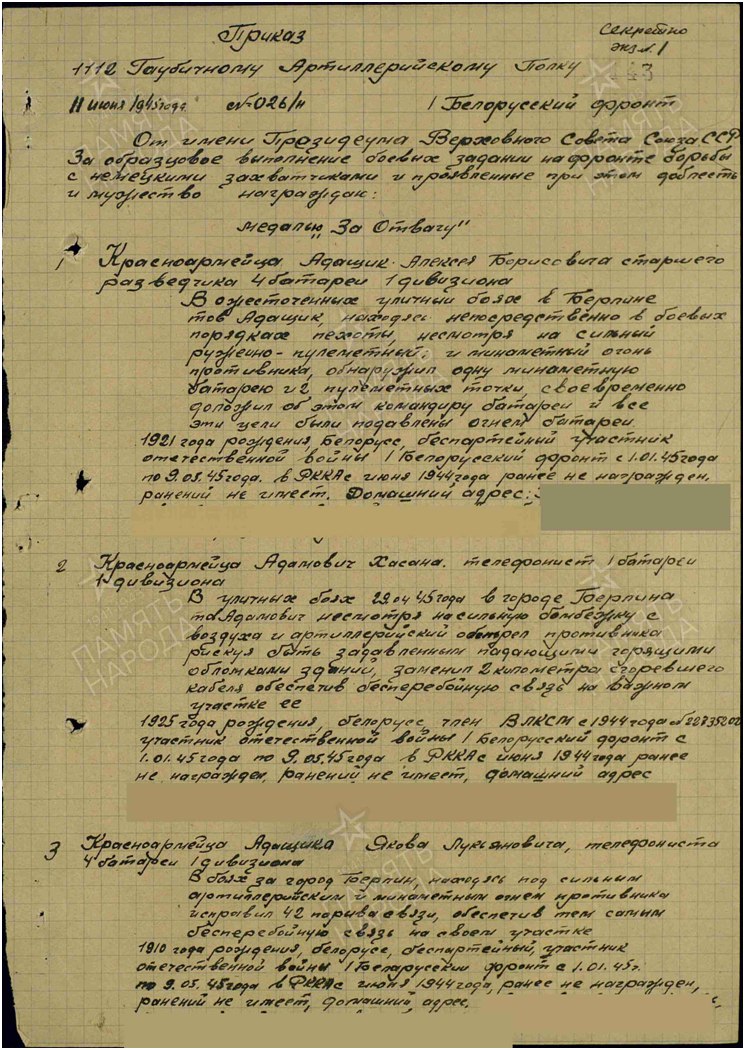 Приказ
Секретно
экз №1
1112 Гаубичному Артиллерийскому Полку
243
11 июня 1945 года №026/н 1 Белорусский фронт
От имени Президеума Верховного Совета Союза ССР
За образцовое выполнение боевых задании на фронте борьбы
с немецкими захватчиками и проявленные при этом доблесть
и мужество награждаю:
медалью „За Отвагу"
1 Красноармейца Адащик Алексея Борисовича старшего
разведчика 4 батареи 1 дивизиона
В ожесточенных уличный боях в Берлине
тов Адащик, находясь непосредственно в боевых
порядках пехоты, несмотря на сильный
ружейно-пулеметный и минаметный огонь
противника, обнаружил одну минаметную
батарею и 2 пулеметных точки, своевременно
доложил об этом командиру батареи и все
эти цели были подавлены огнем батареи
1921 года рождения, Белорусс, беспартейный участник
отечественной войны 1 Белорусский фронт с 1.01.45 года
по 9.05.45 года. в РККА с июня 1944 года ранее не награжден,
ранений не имеет. Домашний адрес:
2 Красноармейца Адамович Хасана. телефонист 1 батареи
1 дивизиона
В уличных боях 29.04 45 года в городе Берлина
тов Адамович несмотря на сильную бомбежку с
воздуха и артиллерийский обстрел противника
рискуя быть задавленным падающими горящими
обломками зданий, заменил 2 километра сгоревшего
кабеля обеспечив бесперебойную связь на важном
участке ее
1925 года рождения, белорусс, член ВЛКСМ с 1944 года № 22735202
участник отечественной войны 1 Белорусский фронт с
1.01.45 года по 9.05.45 года в РККА с июня 1944 года ранее
не награжден, ранений не имеет, домашний адрес
3 Красноармейца Адащика Якова Лукьяновича, телефониста
4 батареи 1 дивизиона
В боях за город Берлин, находясь под сильным
артиллерийским и минаметным огнем противника
исправил 42 порыва связи, обеспечив тем самым
бесперебойную связь на своем участке
1910 года рождения, белорусс, беспартейный, участник
отечественной войны 1 Беларусский фронт с 1.01.45г.
по 9.05.45 года в РККА с июня 1944 года, ранее не награжден,
ранений не имеет, домашний адрес.
ПАМЯТЬ НАРОДА
ПАМЯТЬ НАРОДА
ПАМЯТЬ НАРОДА
ПАМЯТЬ НАРОДА
ПАМЯТЬ НАРОДА